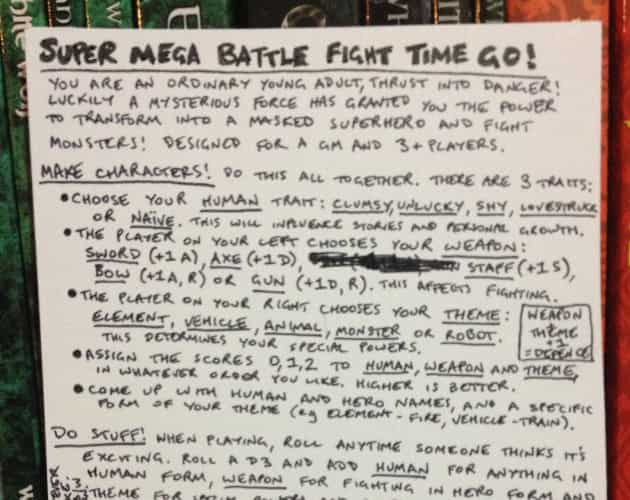 SUPER MEGA BATTLE FIGHT TIME GO!
YOU ARE AN ORDINARY YOUNG ADULT, THRUST INTO DANGER!
LUCKILY A MYSTERIOUS FORCE HAS GRANTED YOU THE POWER
TO TRANSFORM INTO A MASKED SUPERHERO AND FIGHT
MONSTERS! DESIGNED FOR A GM AND 3+ PLAYERS.
MAKE CHARACTERS! DO THIS ALL TOGETHER. THERE ARE 3 TRAITS:
• CHOOSE YOUR HUMAN TRAIT: CLUMSY, UNLUCKY, SHY, LOVESTRUCK
OR NAÏVE. THIS WILL INFLUENCE STORIES AND PERSONAL GROWTH.
• THE PLAYER ON YOUR LEFT CHOOSES YOUR WEAPON:
SWORD (+1A), AXE (+1D), STAFF (+1S),
BOW (+1A, R) OR GUN (+1D, R). THIS AFFECTS FIGHTING.
• THE PLAYER ON YOUR RIGHT CHOOSES YOUR THEME:
ELEMENT, VEHICLE, ANIMAL, MONSTER OR ROBOT.
THIS DETERMINES YOUR SPECIAL POWERS.
WEAPON
THEME
+1
= DEFENCE
• ASSIGN THE SCORES 0,1,2 TO HUMAN, WEAPON AND THEME,
IN WHATEVER ORDER YOU LIKE. HIGHER IS BETTER.
• COME UP WITH HUMAN AND HERO NAMES, AND A SPECIFIC
FORM OF YOUR THEME (eg ELEMENT - FIRE, VEHICLE - TRAIN).
DO STUFF! WHEN PLAYING, ROLL ANYTIME SOMEONE THINKS IT'S
EXCITING. ROLL A D3 AND ADD HUMAN FOR ANYTHING IN
HUMAN FORM, WEAPON FOR FIGHTING IN HERO FORM AND
THEME FOR